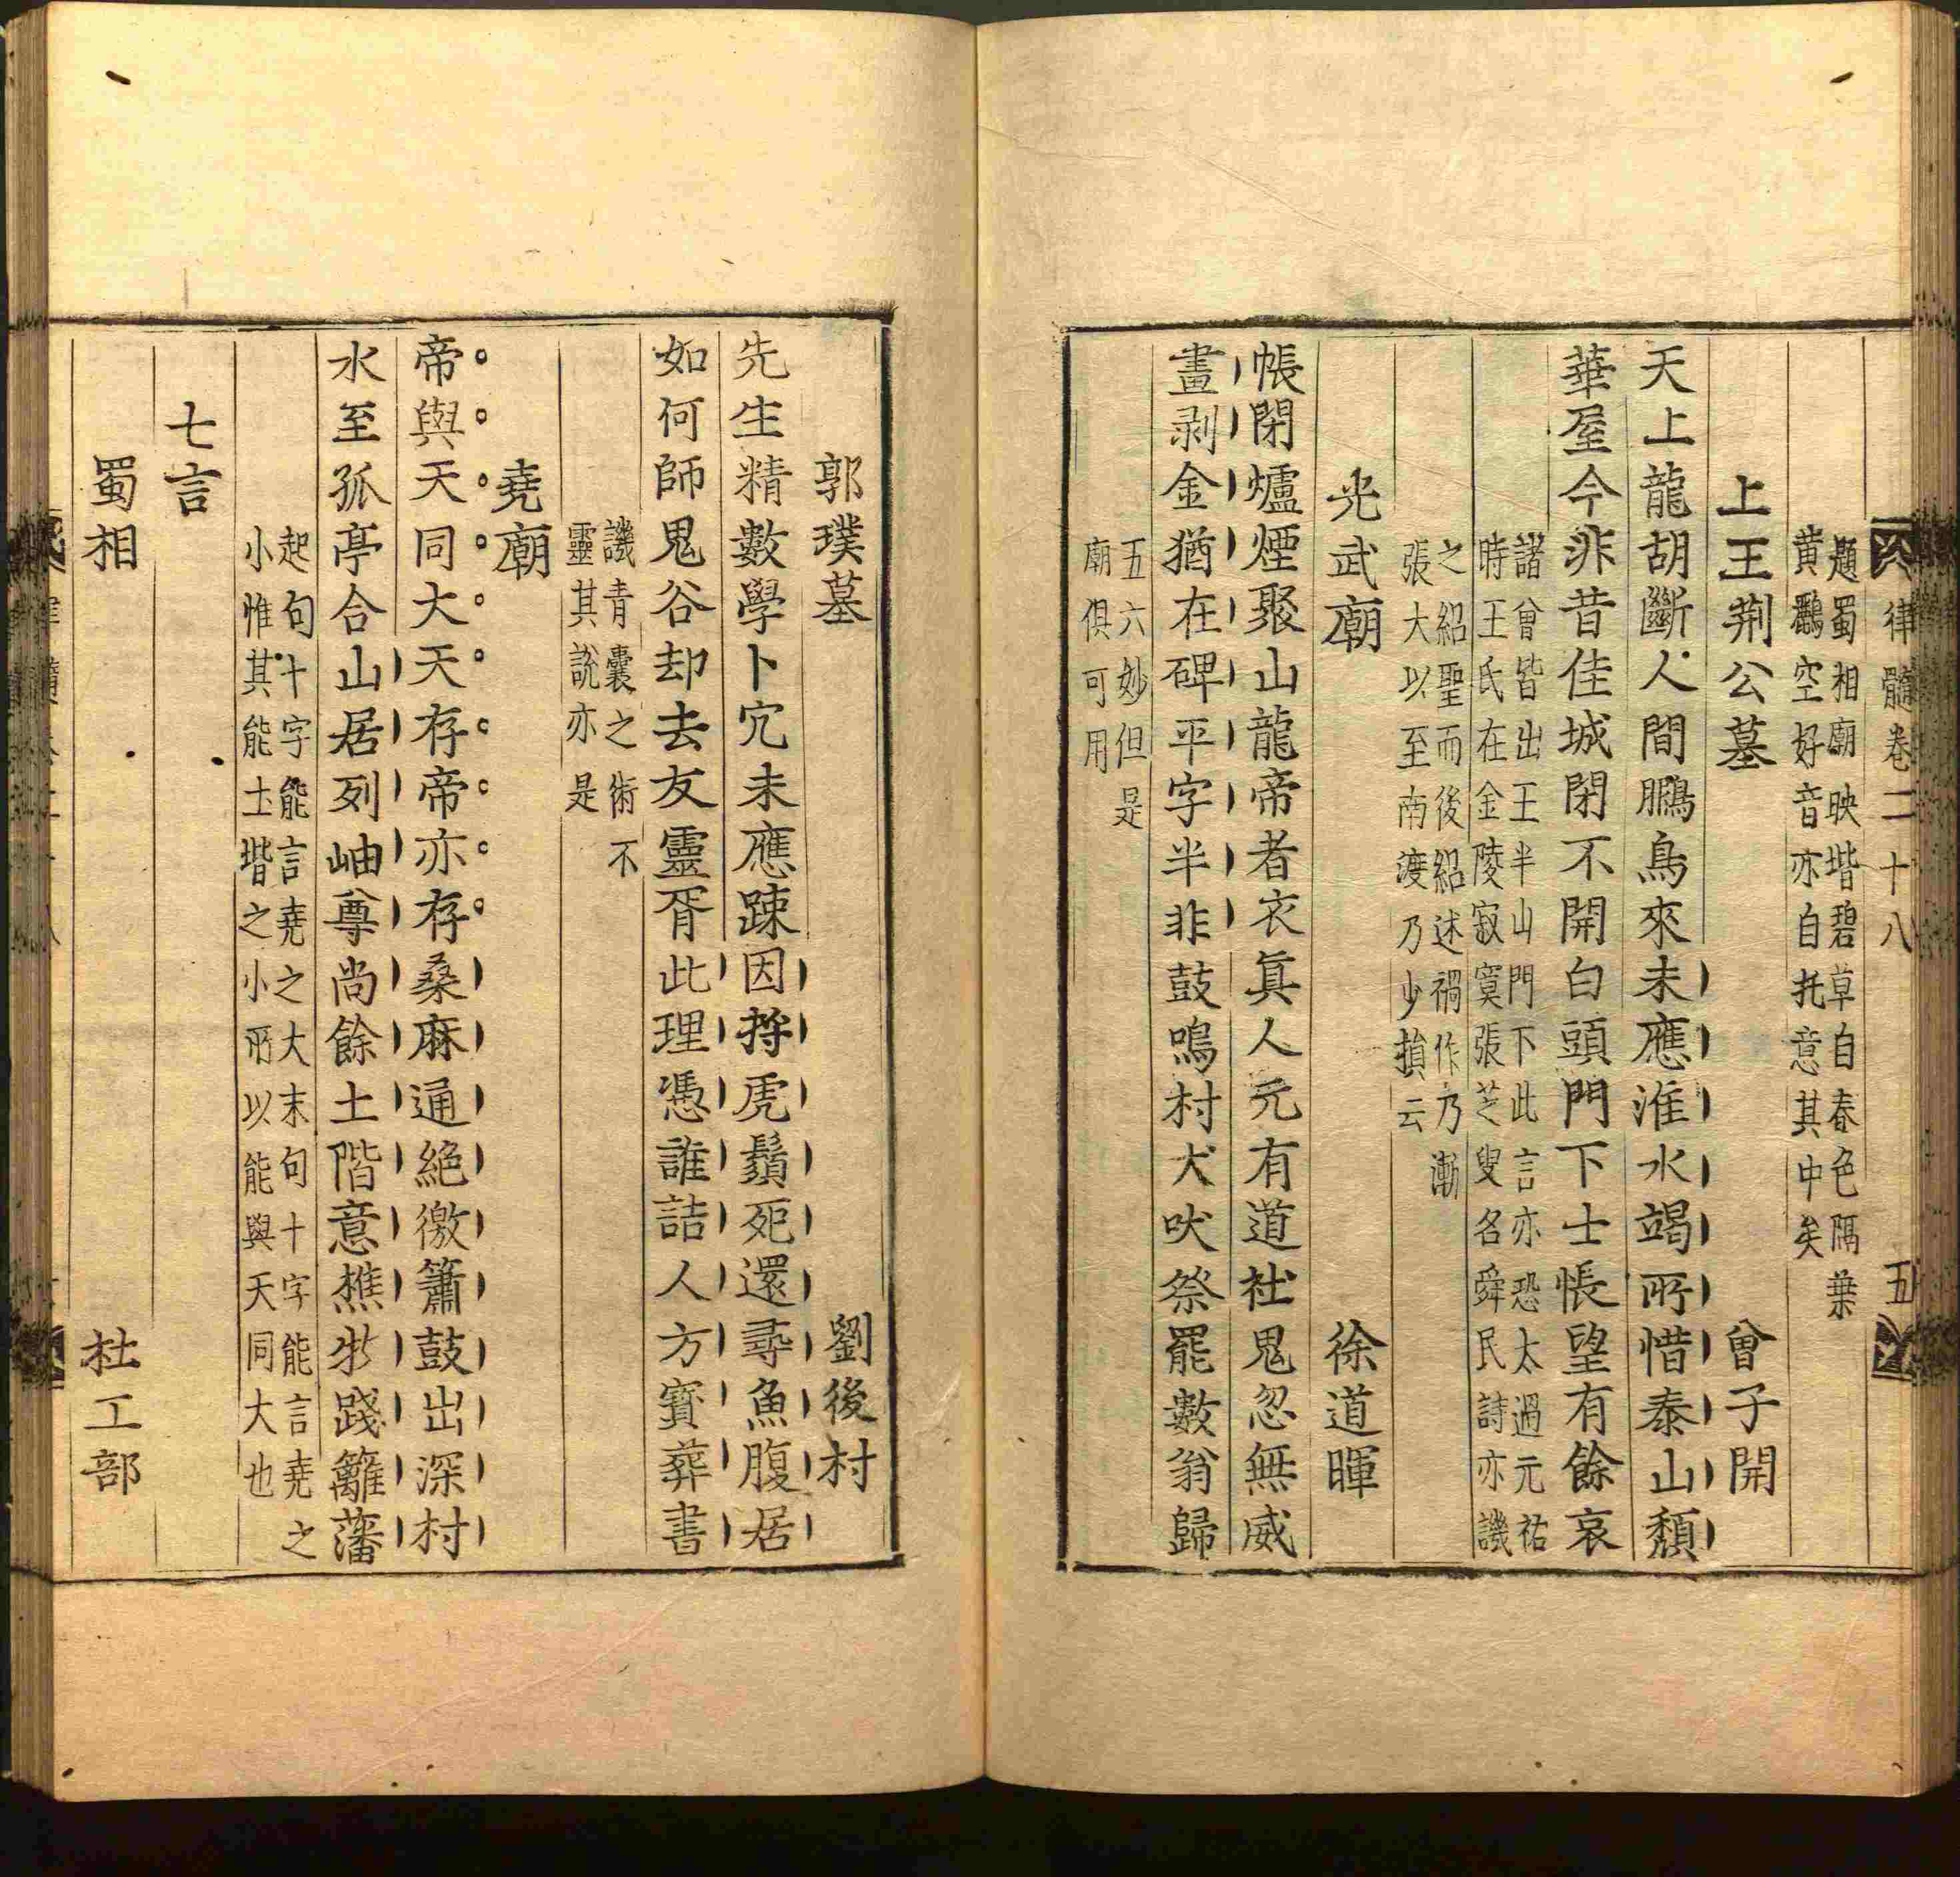 律髓卷二十八 五
題蜀相廟映堦碧草自春色隔葉
黄鸝空好音亦自托意其中矣
上王荆公墓 曾子開
天上龍胡斷人間鵩鳥來未應淮水竭所惜泰山頽
華屋今非昔佳城閉不開白頭門下士悵望有餘哀
諸曾皆出王半山門下此言亦恐太過元祐
時王氏在金陵寂寞張芝叟名舜民詩亦譏
之紹聖而後紹述禍作乃漸
張大以至南渡乃少損云
光武廟 徐道暉
帳閉爐煙聚山龍帝者衣眞人元有道社鬼忽無威
畫剥金猶在碑平字半非鼓鳴村犬吠祭罷數翁歸
五六妙但是
廟俱可用
郭璞墓 劉後村
先生精數學卜宂未應踈因捋虎鬚死還尋魚腹居
如何師鬼谷却去友靈胥此理憑誰詰人方寳葬書
譏青囊之術不
靈其説亦是
堯廟
帝與天同大天存帝亦存桑麻通絶徼簫鼓出深村
水至孤亭合山居列岫尊尚餘土階意樵牧踐籬藩
起句十字能言堯之大末句十字能言堯之
小惟其能土堦之小所以能與天同大也
七言
蜀相 杜工部